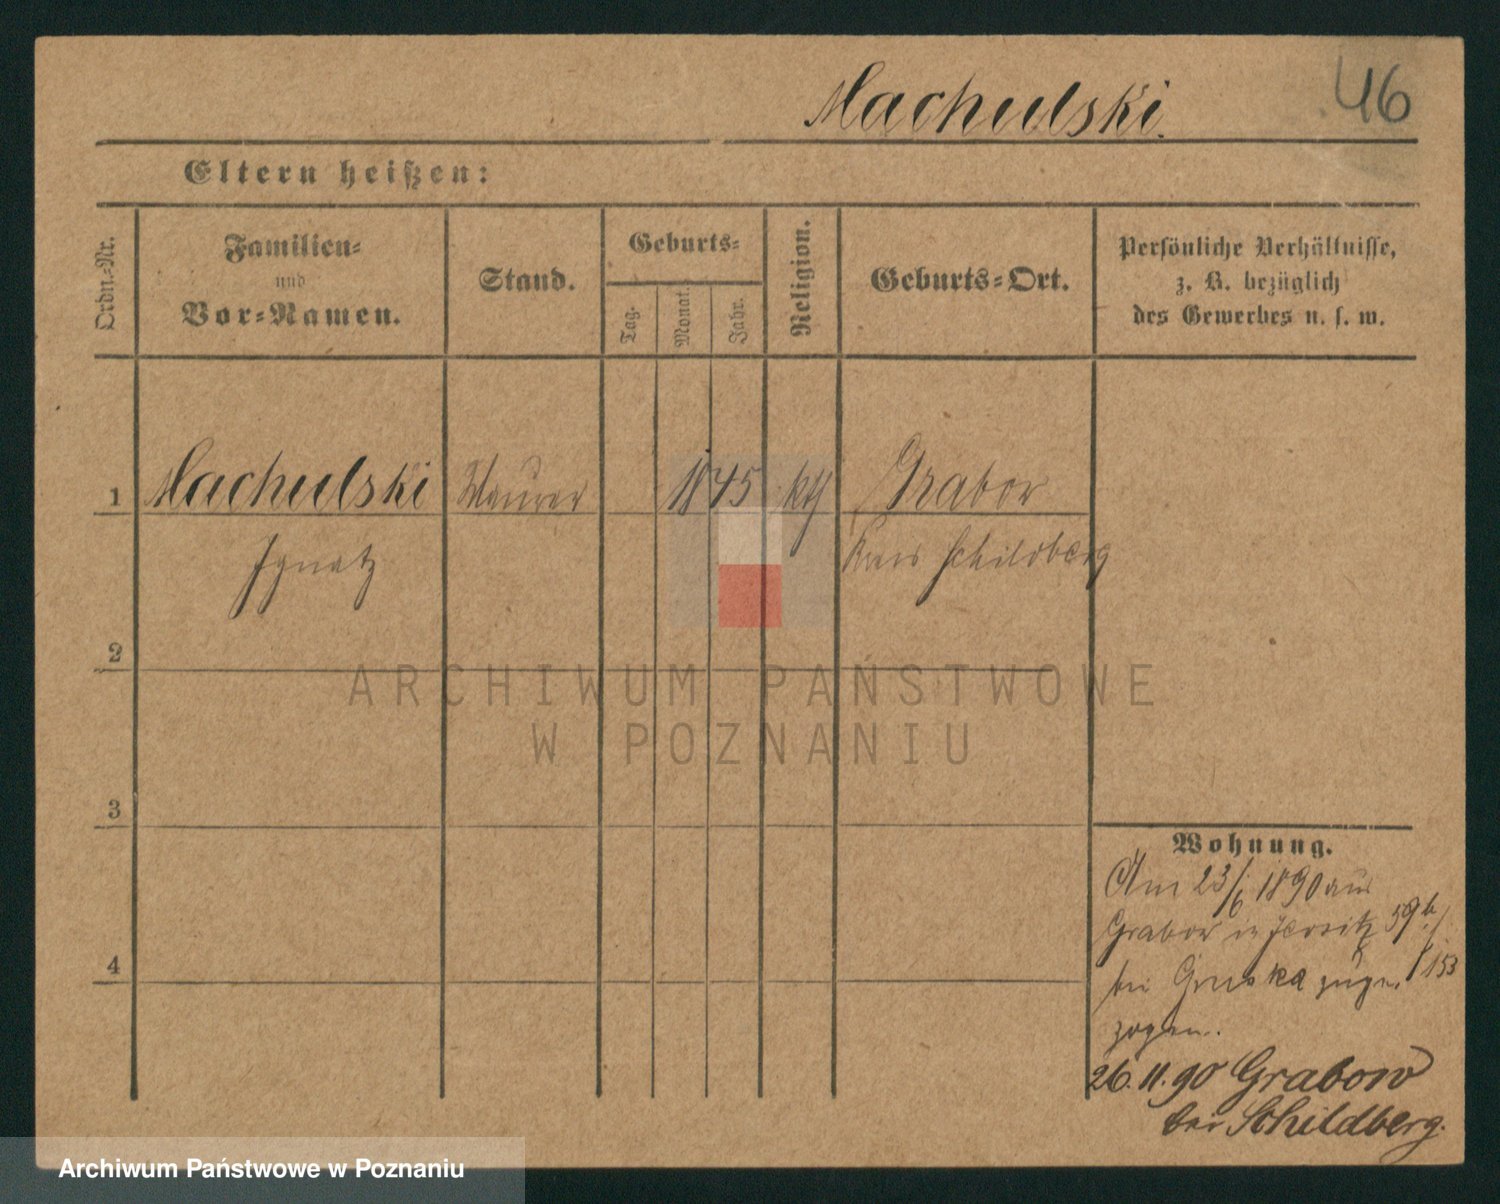 Machulski.
46
Eltern heißen:
Ordn.-Nr.
Familien-
und
Vor-Namen.
Stand.
Geburts-
Tag.
Monat.
Jahr.
Religion.
Geburts-Ort.
Persönliche Verhältnisse,
z. B. bezüglich
des Gewerbes u. s. w.
1 Machulski Maurer 1845 kth Grabow
Ignatz Kreis Schildberg
2
3
4
Wohnung.
Am 23/6 1890 aus
Grabow in Jersitz 59b/
bei zuge- 153
zogen.
26.11.90 Grabow
bei Schildberg.
ARCHIWUM PAŃSTWOWE
W POZNANIU
Archiwum Państwowe w Poznaniu